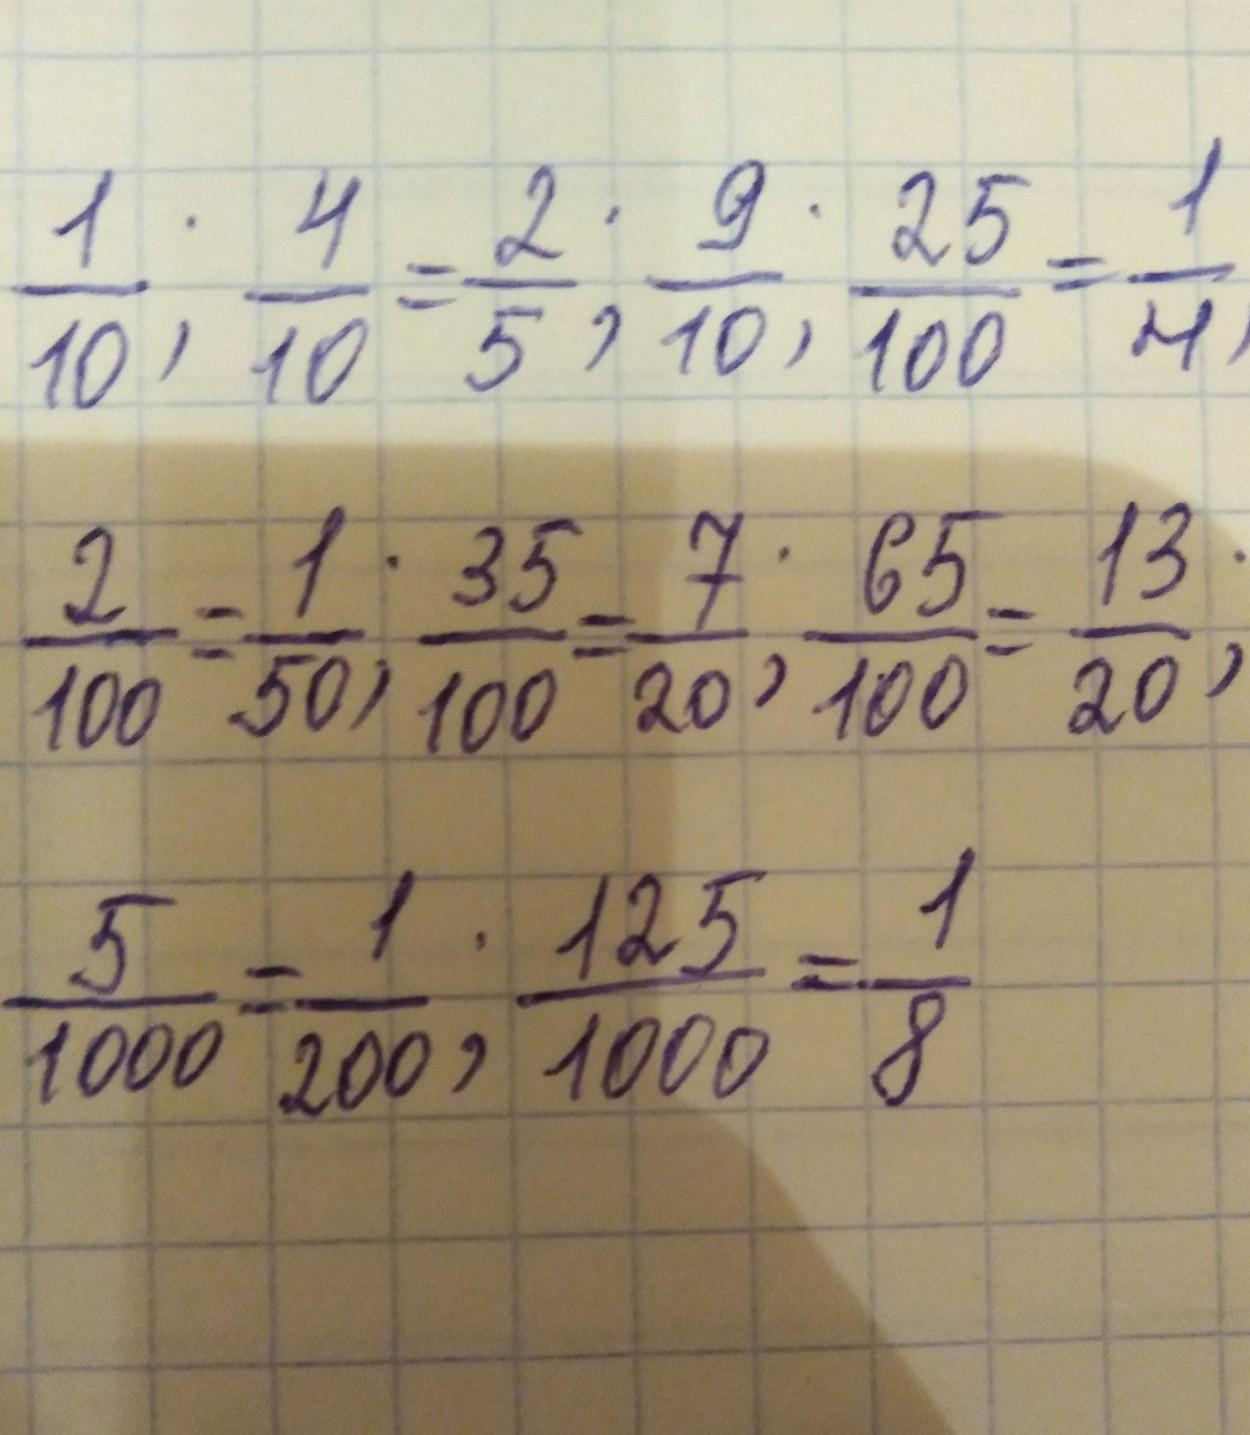 1/10; 4/10 = 2/5; 9/10; 25/100 = 1/4;
2/100 = 1/50; 35/100 = 7/20; 65/100 = 13/20;
5/1000 = 1/200; 125/1000 = 1/8